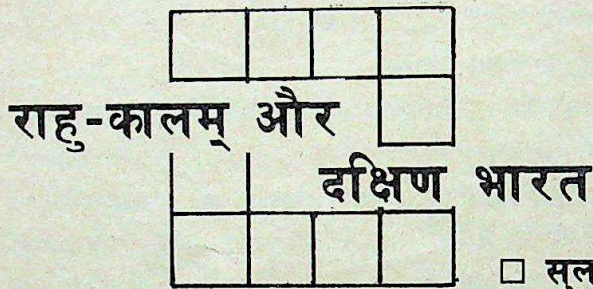 राहु-कालम् और
दक्षिण भारत
□